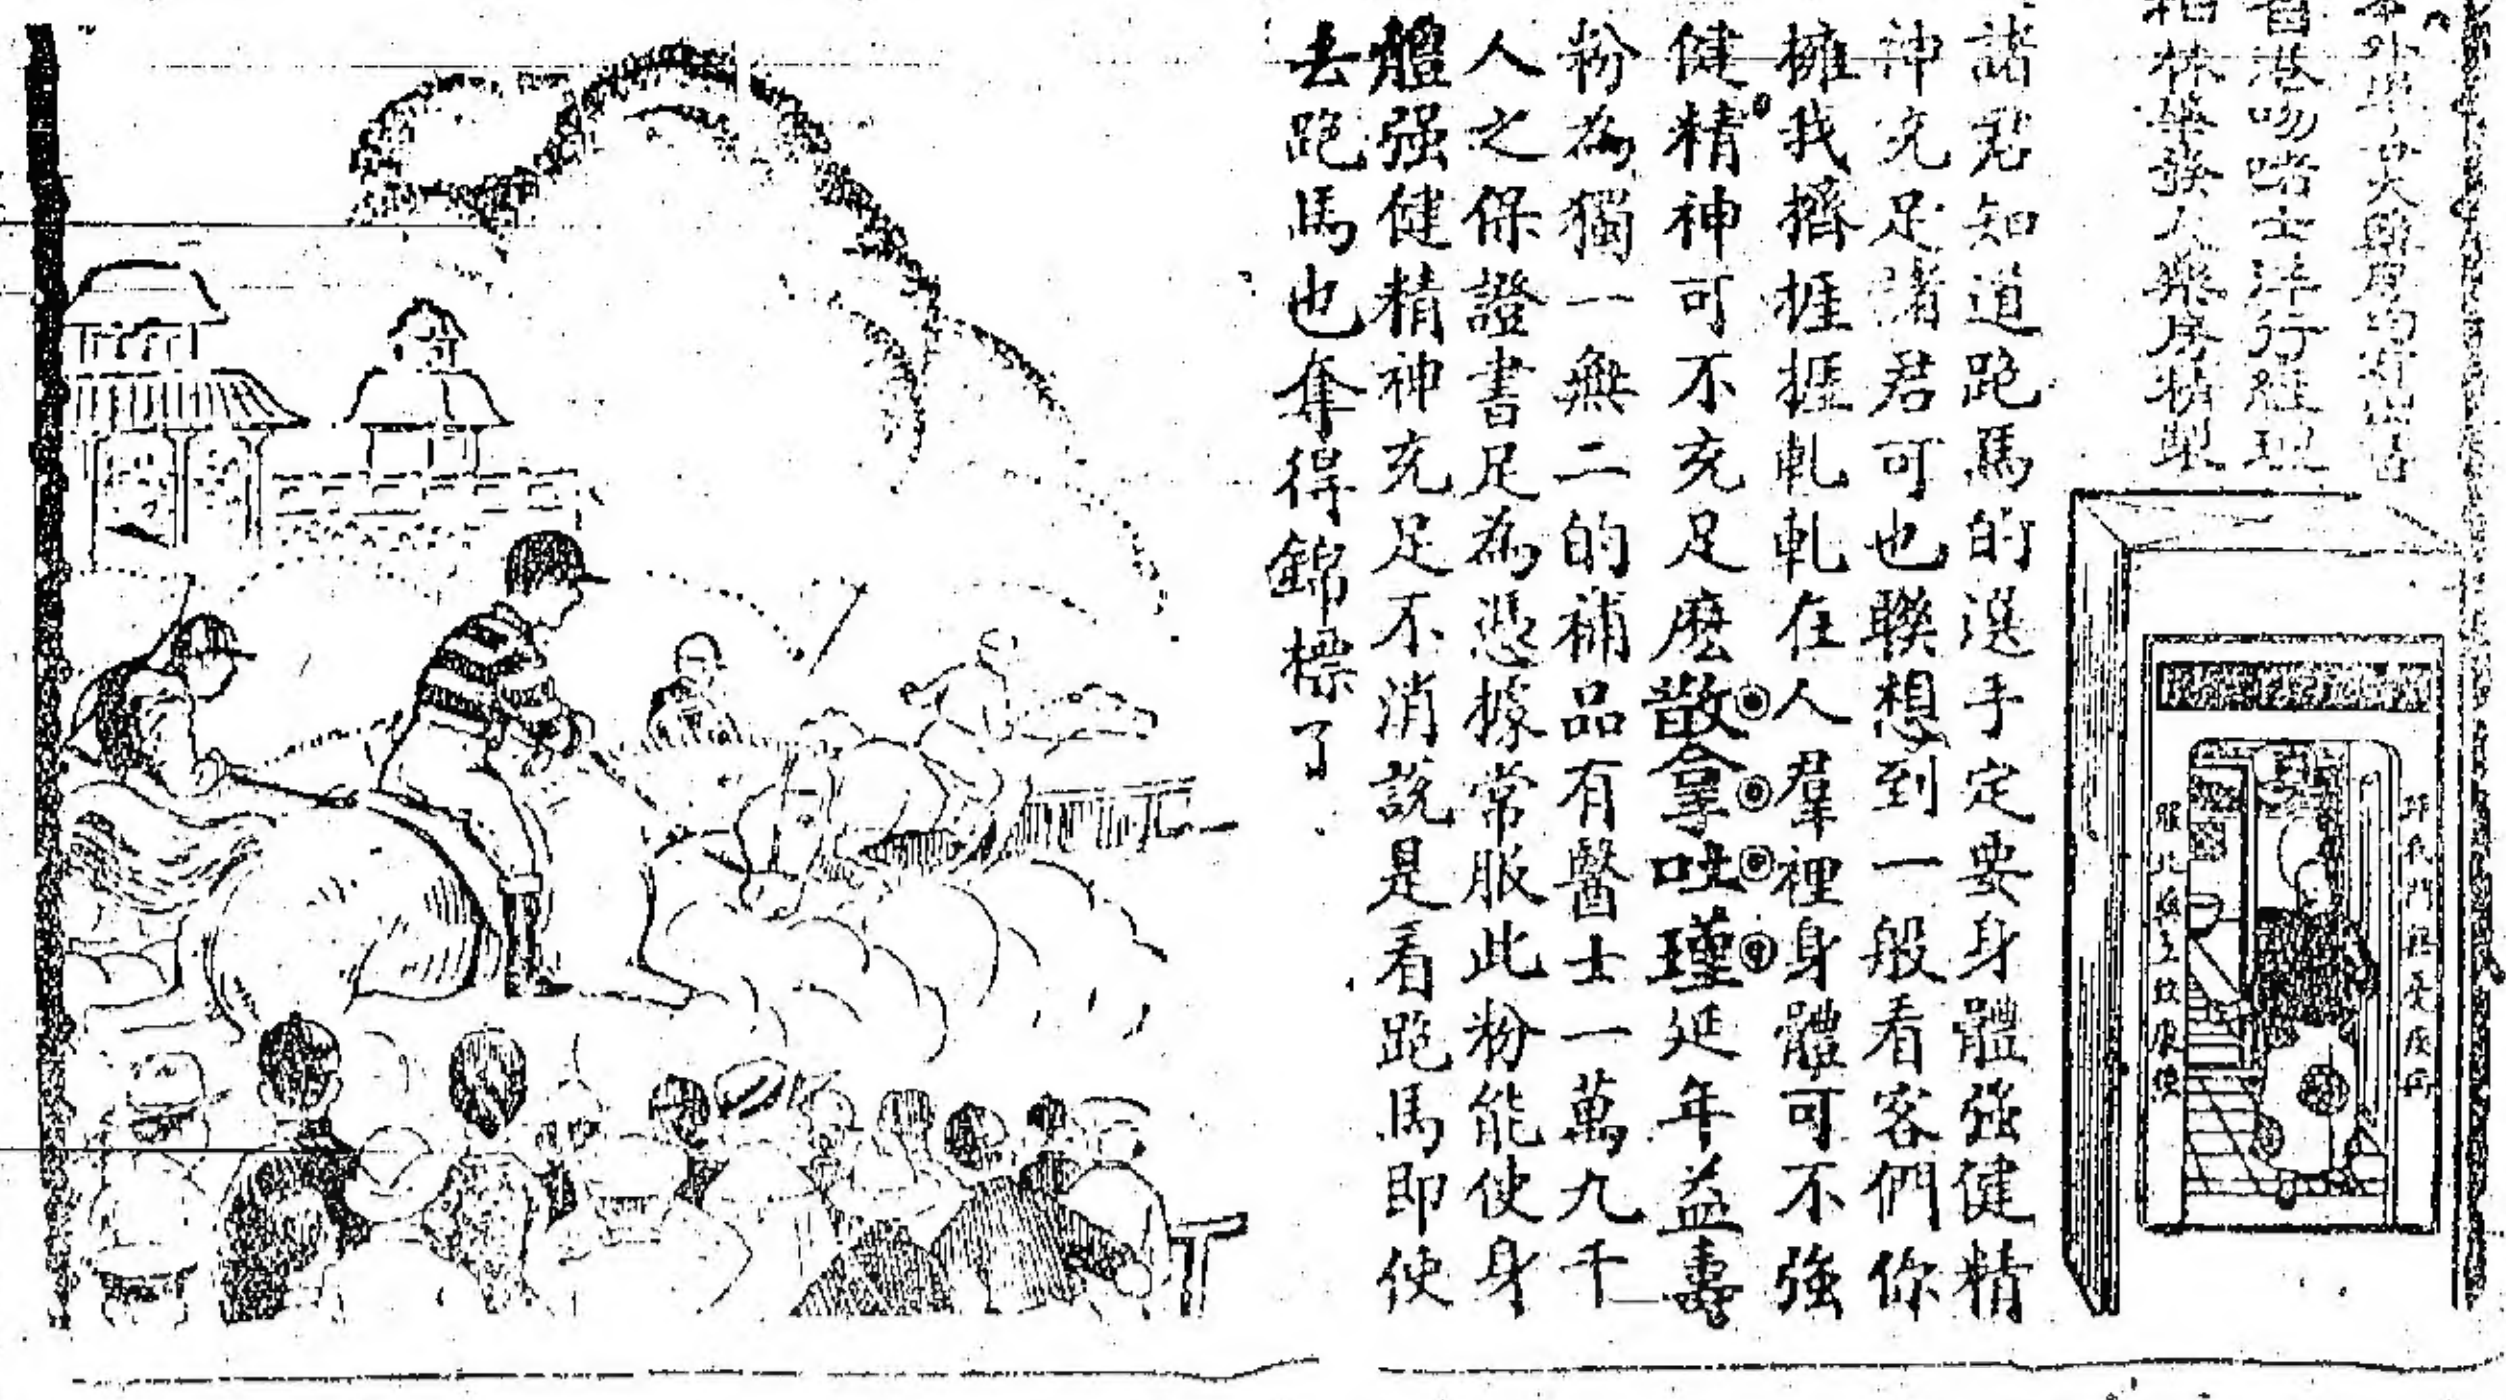 香港吻啫士洋行經理
柏林華發大藥房精製
諸君知道跑馬的選手定要身體強健精
神充足諸君可也聯想到一般看客們你
擁我擠捱捱軋軋在人羣裡身體可不強
健精神可不充足麽散拿吐瑾延年益壽
粉為獨一無二的補品有醫士一萬九千
人之保證書足為憑據常服此粉能使身
體强健精神充足不消說是看跑馬即使
去跑馬也奪得錦標了